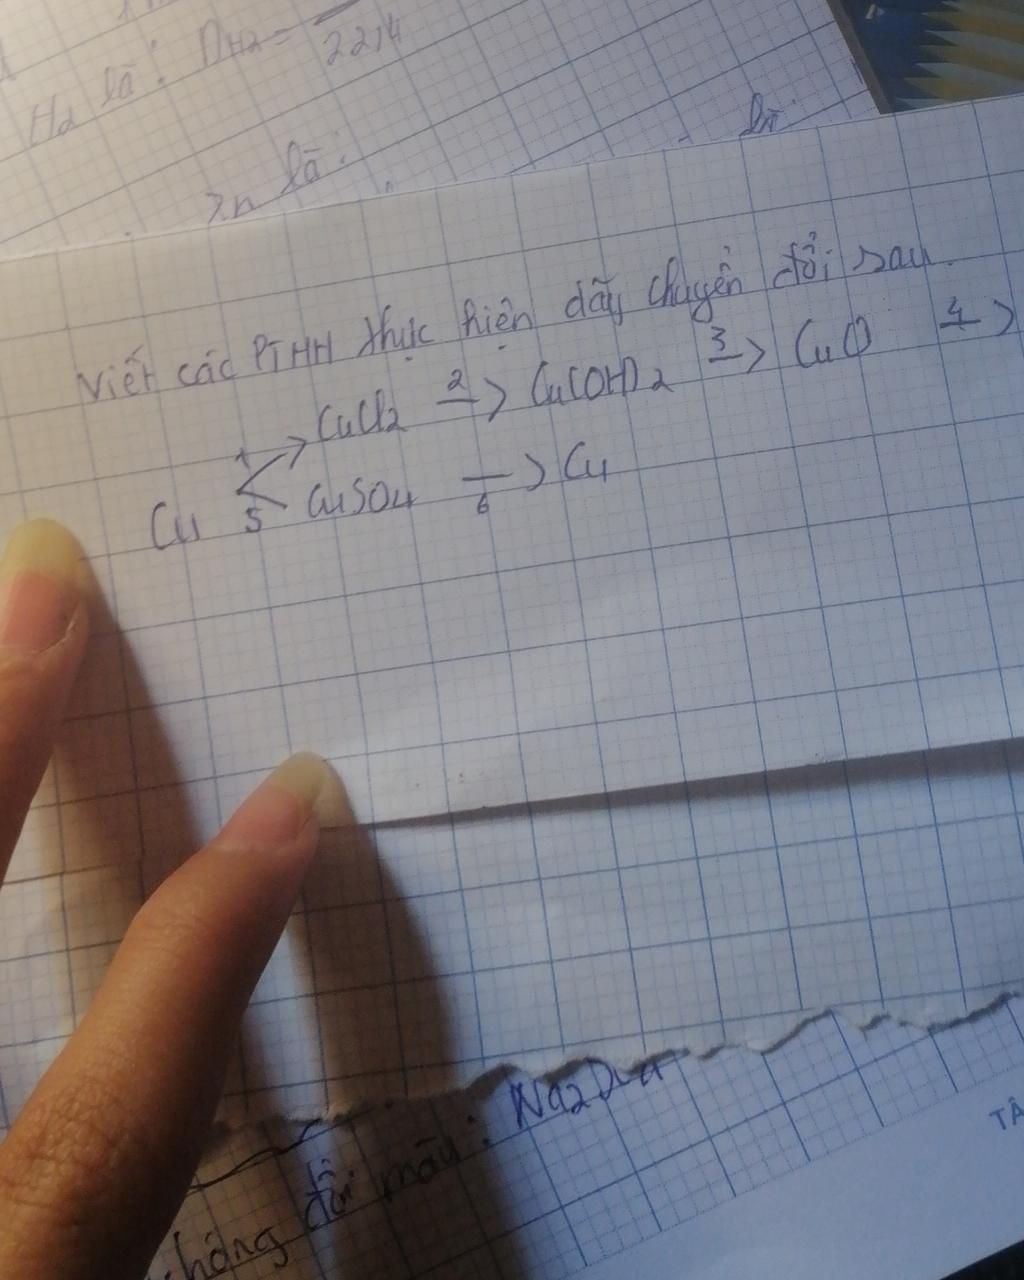 H2 là: nH2 = 22,4
là:
Viết các PTHH thực hiện dãy chuyển đổi sau.
1 CuCl2 2 Cu(OH)2 3 CuO 4
Cu 5 CuSO4 6 Cu
đổi màu:
TÂ